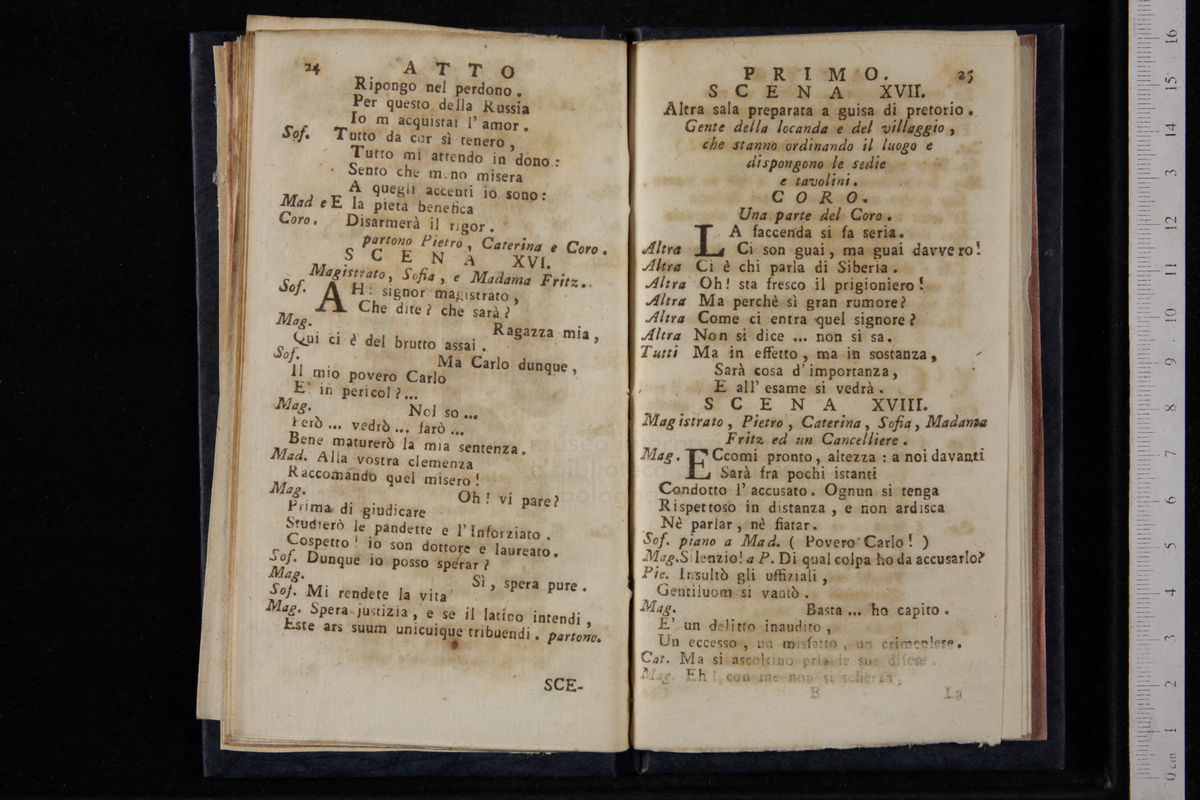 24 ATTO
Ripongo nel perdono.
Per questo della Russia
Io m acquistai l' amor.
Sof. Tutto da cor sì tenero,
Tutto mi attendo in dono:
Sento che meno misera
A quegli accenti io sono:
Mad e E la pieta benefica
Coro. Disarmerà il rigor.
partono Pietro, Caterina e Coro.
SCENA XVI.
Magistrato, Sofia, e Madama Fritz.
Sof. AH! signor magistrato,
Che dite? che sarà?
Mag. Ragazza mia,
Qui ci è del brutto assai.
Sof. Ma Carlo dunque,
Il mio povero Carlo
E' in pericol?...
Mag. Nol so...
Però... vedrò... farò...
Bene maturerò la mia sentenza.
Mad. Alla vostra clemenza
Raccomando quel misero!
Mag. Oh! vi pare?
Prima di giudicare
Studierò le pandette e l'Inforziato.
Cospetto! io son dottore e laureato.
Sof. Dunque io posso sperar?
Mag. Sì, spera pure.
Sof. Mi rendete la vita
Mag. Spera justizia, e se il latino intendi,
Este ars suum unicuique tribuendi. partono.
SCE-
PRIMO. 25
SCENA XVII.
Altra sala preparata a guisa di pretorio.
Gente della locanda e del villaggio,
che stanno ordinando il luogo e
dispongono le sedie
e tavolini.
CORO.
Una parte del Coro.
LA faccenda si fa seria.
Altra Ci son guai, ma guai davvero!
Altra Ci è chi parla di Siberia.
Altra Oh! sta fresco il prigioniero!
Altra Ma perchè sì gran rumore?
Altra Come ci entra quel signore?
Altra Non si dice ... non si sa.
Tutti Ma in effetto, ma in sostanza,
Sarà cosa d'importanza,
E all' esame si vedrà.
SCENA XVIII.
Magistrato, Pietro, Caterina, Sofia, Madama
Fritz ed un Cancelliere.
Mag. ECcomi pronto, altezza: a noi davanti
Sarà fra pochi istanti
Condotto l'accusato. Ognun si tenga
Rispettoso in distanza, e non ardisca
Nè parlar, nè fiatar.
Sof. piano a Mad. ( Povero Carlo! )
Mag. Silenzio! a P. Di qual colpa ho da accusarlo?
Pie. Insultò gli uffiziali,
Gentiluom si vantò.
Mag. Basta... ho capito.
E' un delitto inaudito,
Un eccesso, un misfatto, un crimenlese.
Cat. Ma si ascoltino pria le sue difese.
Mag. Eh! con me non si scherza,
B La